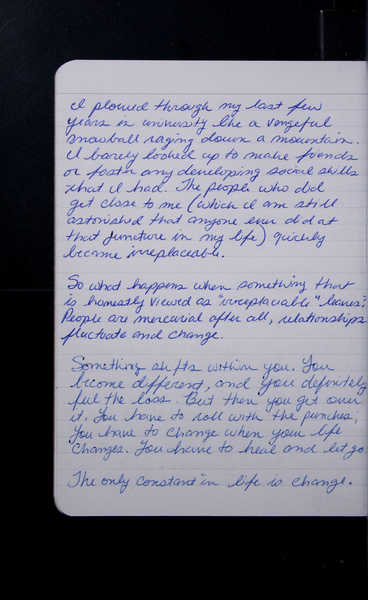 I plowed through my last few
years in university like a vengeful
snowball raging down a mountain.
I barely looked up to make friends
or foster any developing social skills
that I had. The people who did
get close to me (which I am still
astonished that anyone ever did at
that juncture in my life) quickly
became irreplaceable.
So what happens when something that
is honestly viewed as "irreplaciable" leaves?
People are mercurial after all, relationships
fluctuate and change.
Something shifts within you. You
become different, and you definitely
feel the loss. But then you get over
it. You have to roll with the punches;
you have to change when your life
changes. You have to heal and let go.
The only constant in life is change.